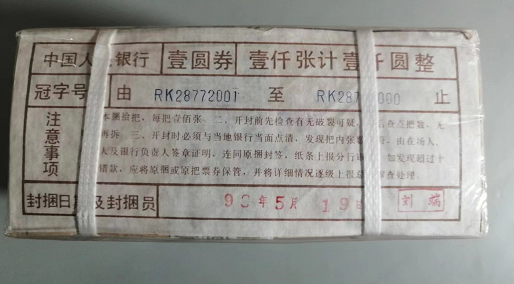 中国人 银行 壹圆券 壹仟张计壹仟圆整
冠字号 由 RK28772001 至 RK287 000 止
注意事项
本捆拾把，每把壹佰张 二、开封前先检查有无破裂可疑， 后在点把数，无
再拆 三、开封时必须与当地银行当面点清，发现把内张 ，由在场人
人及银行负责人签章证明，连同原捆封签，纸条上报分行 如发现超过十
错款，应将原捆或原把票券保管，并将详细情况逐级上报 审查处理。
封捆日 及封捆员 98年5月 19 刘 瑞